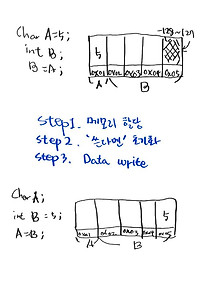 Char A=5;
int B;
B=A;
-128~127
5
0x01 0x02 0x03 0x04 0x05
A B
step1. 메모리 할당
step2. 초기화
step3. Data write
Char A;
int B=5;
A=B;
5
0x01 0x02 0x03 0x04 0x05
A B